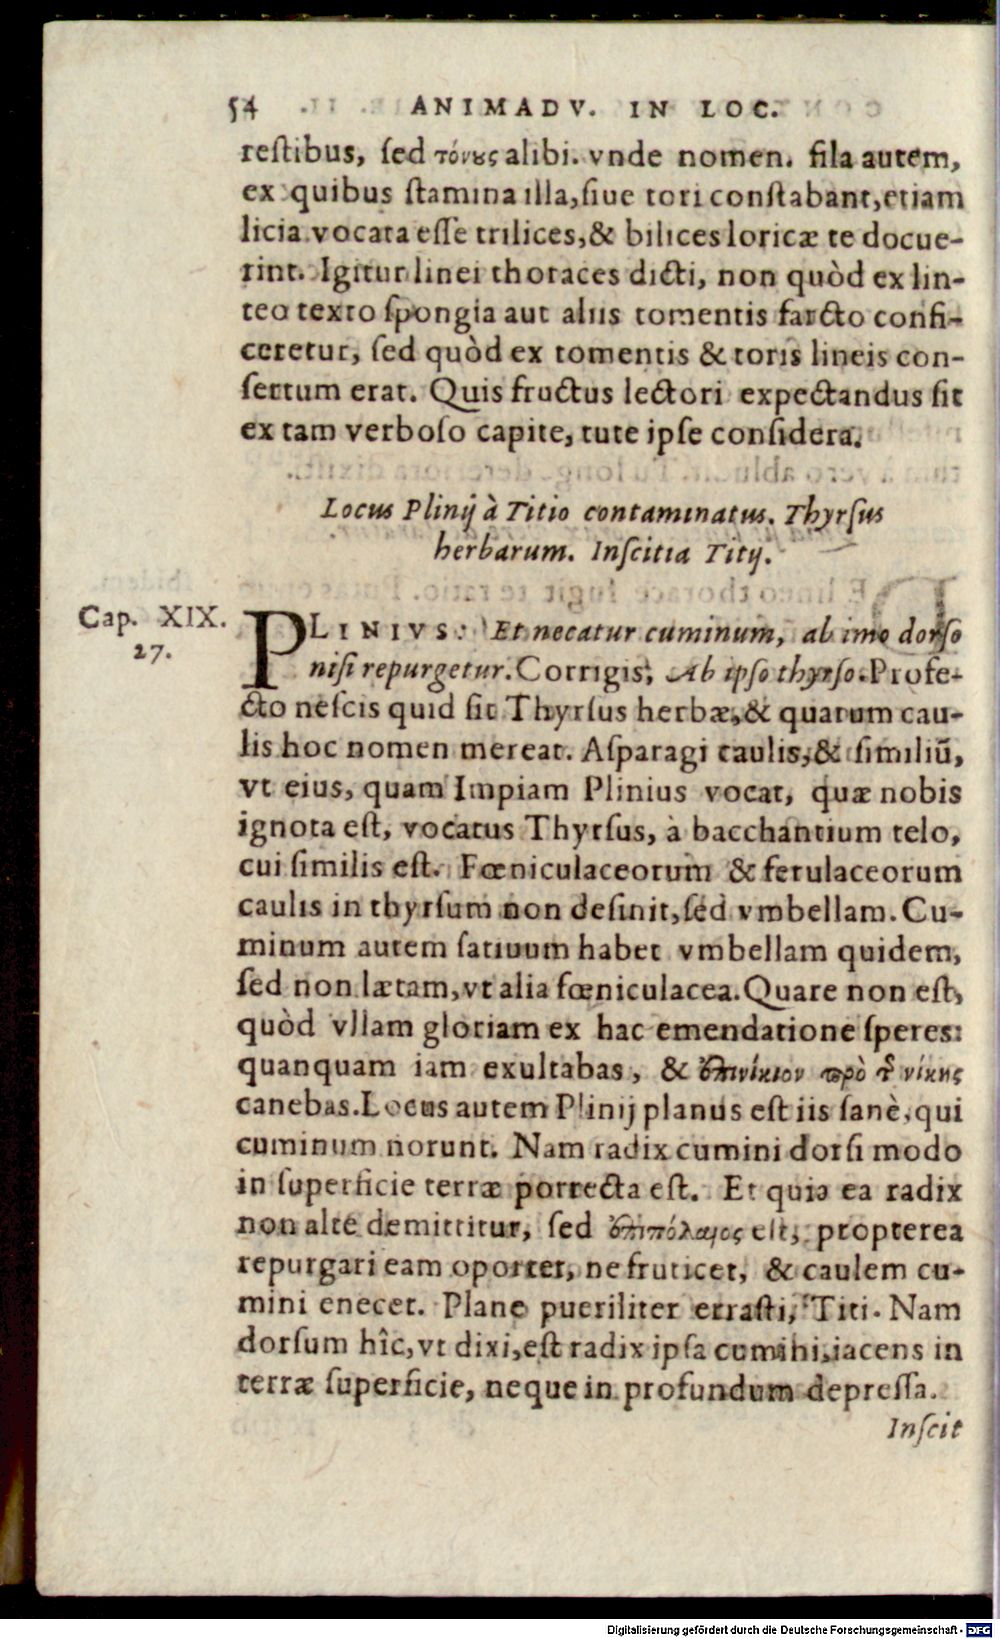 54 ANIMADV. IN LOC.
reſtibus, ſed τόνȣς alibi. vnde nomen. fila autem,
ex quibus ſtamina illa, ſiue tori conſtabant, etiam
licia vocata eſſe trilices, & bilices loricæ te docue-
rint. Igitur linei thoraces dicti, non quòd ex lin-
teo texto ſpongia aut aliis tomentis farcto confi-
ceretur, ſed quòd ex tomentis & toris lineis con-
ſertum erat. Quis fructus lectori expectandus ſit
ex tam verboſo capite, tute ipſe conſidera.
Locus Plinij à Titio contaminatus. Thyrſus
herbarum. Inſcitia Titij.
Cap. XIX.
27.
PLINIVS: Et necatur cuminum, ab imo dorſo
niſi repurgetur. Corrigis, Ab ipſo thyrſo. Profe-
cto neſcis quid ſit Thyrſus herbæ, & quarum cau-
lis hoc nomen mereat. Aſparagi caulis, & ſimiliū,
vt eius, quam Impiam Plinius vocat, quæ nobis
ignota eſt, vocatus Thyrſus, à bacchantium telo,
cui ſimilis eſt. Fœniculaceorum & ferulaceorum
caulis in thyrſum non deſinit, ſed vmbellam. Cu-
minum autem ſatiuum habet vmbellam quidem,
ſed non lætam, vt alia fœniculacea. Quare non eſt,
quòd vllam gloriam ex hac emendatione ſperes:
quanquam iam exultabas, & ἐπινίκιον πρὸ τῆς νίκης
canebas. Locus autem Plinij planus eſt iis ſanè, qui
cuminum norunt. Nam radix cumini dorſi modo
in ſuperficie terræ porrecta eſt. Et quia ea radix
non alte demittitur, ſed ἐπιπόλαιος eſt, propterea
repurgari eam oportet, ne fruticet, & caulem cu-
mini enecet. Plane pueriliter erraſti, Titi. Nam
dorſum hîc, vt dixi, eſt radix ipſa cumini, iacens in
terræ ſuperficie, neque in profundum depreſſa.
Inſcit
Digitalisierung gefördert durch die Deutsche Forschungsgemeinschaft - DFG